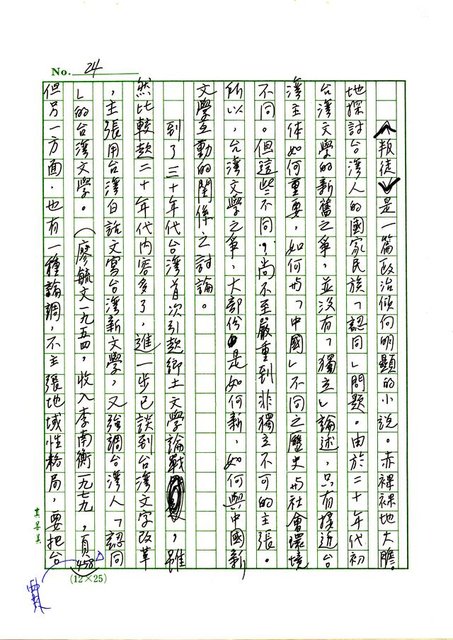 No. 24
〈叛徒〉是一篇政治傾向明顯的小說。赤裸裸地大膽
地探討台灣人的國家民族「認同」問題。由於二十年代初
台灣文學的新舊之爭，並沒有「獨立」論述，只有接近台
灣主体如何重要，如何与「中國」不同之歷史与社會環境
不同。但這些不同，尚不至嚴重到非獨立不可的主張。
所以，台灣文學之爭，大部份是如何新，如何與中國新
文學互動的関係之討論。
到了三十年代台灣首次引起鄉土文學論戰，雖
然比較起二十年代內容多了，進一步已談到台灣文字改革
，主張用台灣白話文寫台灣新文學，又強調台灣人「認同
」的台灣文學。（廖毓文一九五四，收入李南衡一九七九，頁458）
但另一方面，也有一種論調，不主張地域性格局，要把台
(12×25)